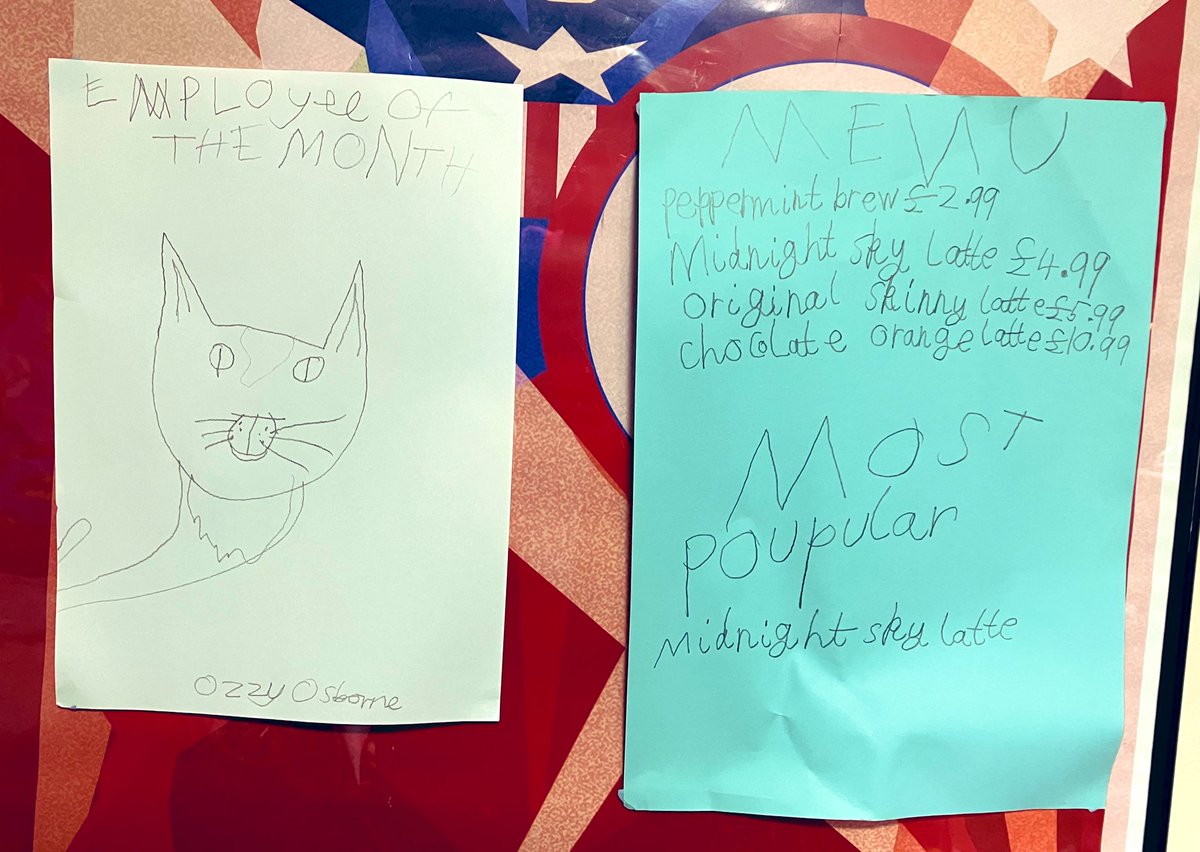 EMPLOyee OF
THE MONTH
Ozzy Osborne
MENU
peppermint brew £2.99
Midnight sky Latte £4.99
original skinny latte £5.99
chocolate orange latte £10.99
MOST
poupular
Midnight sky latte